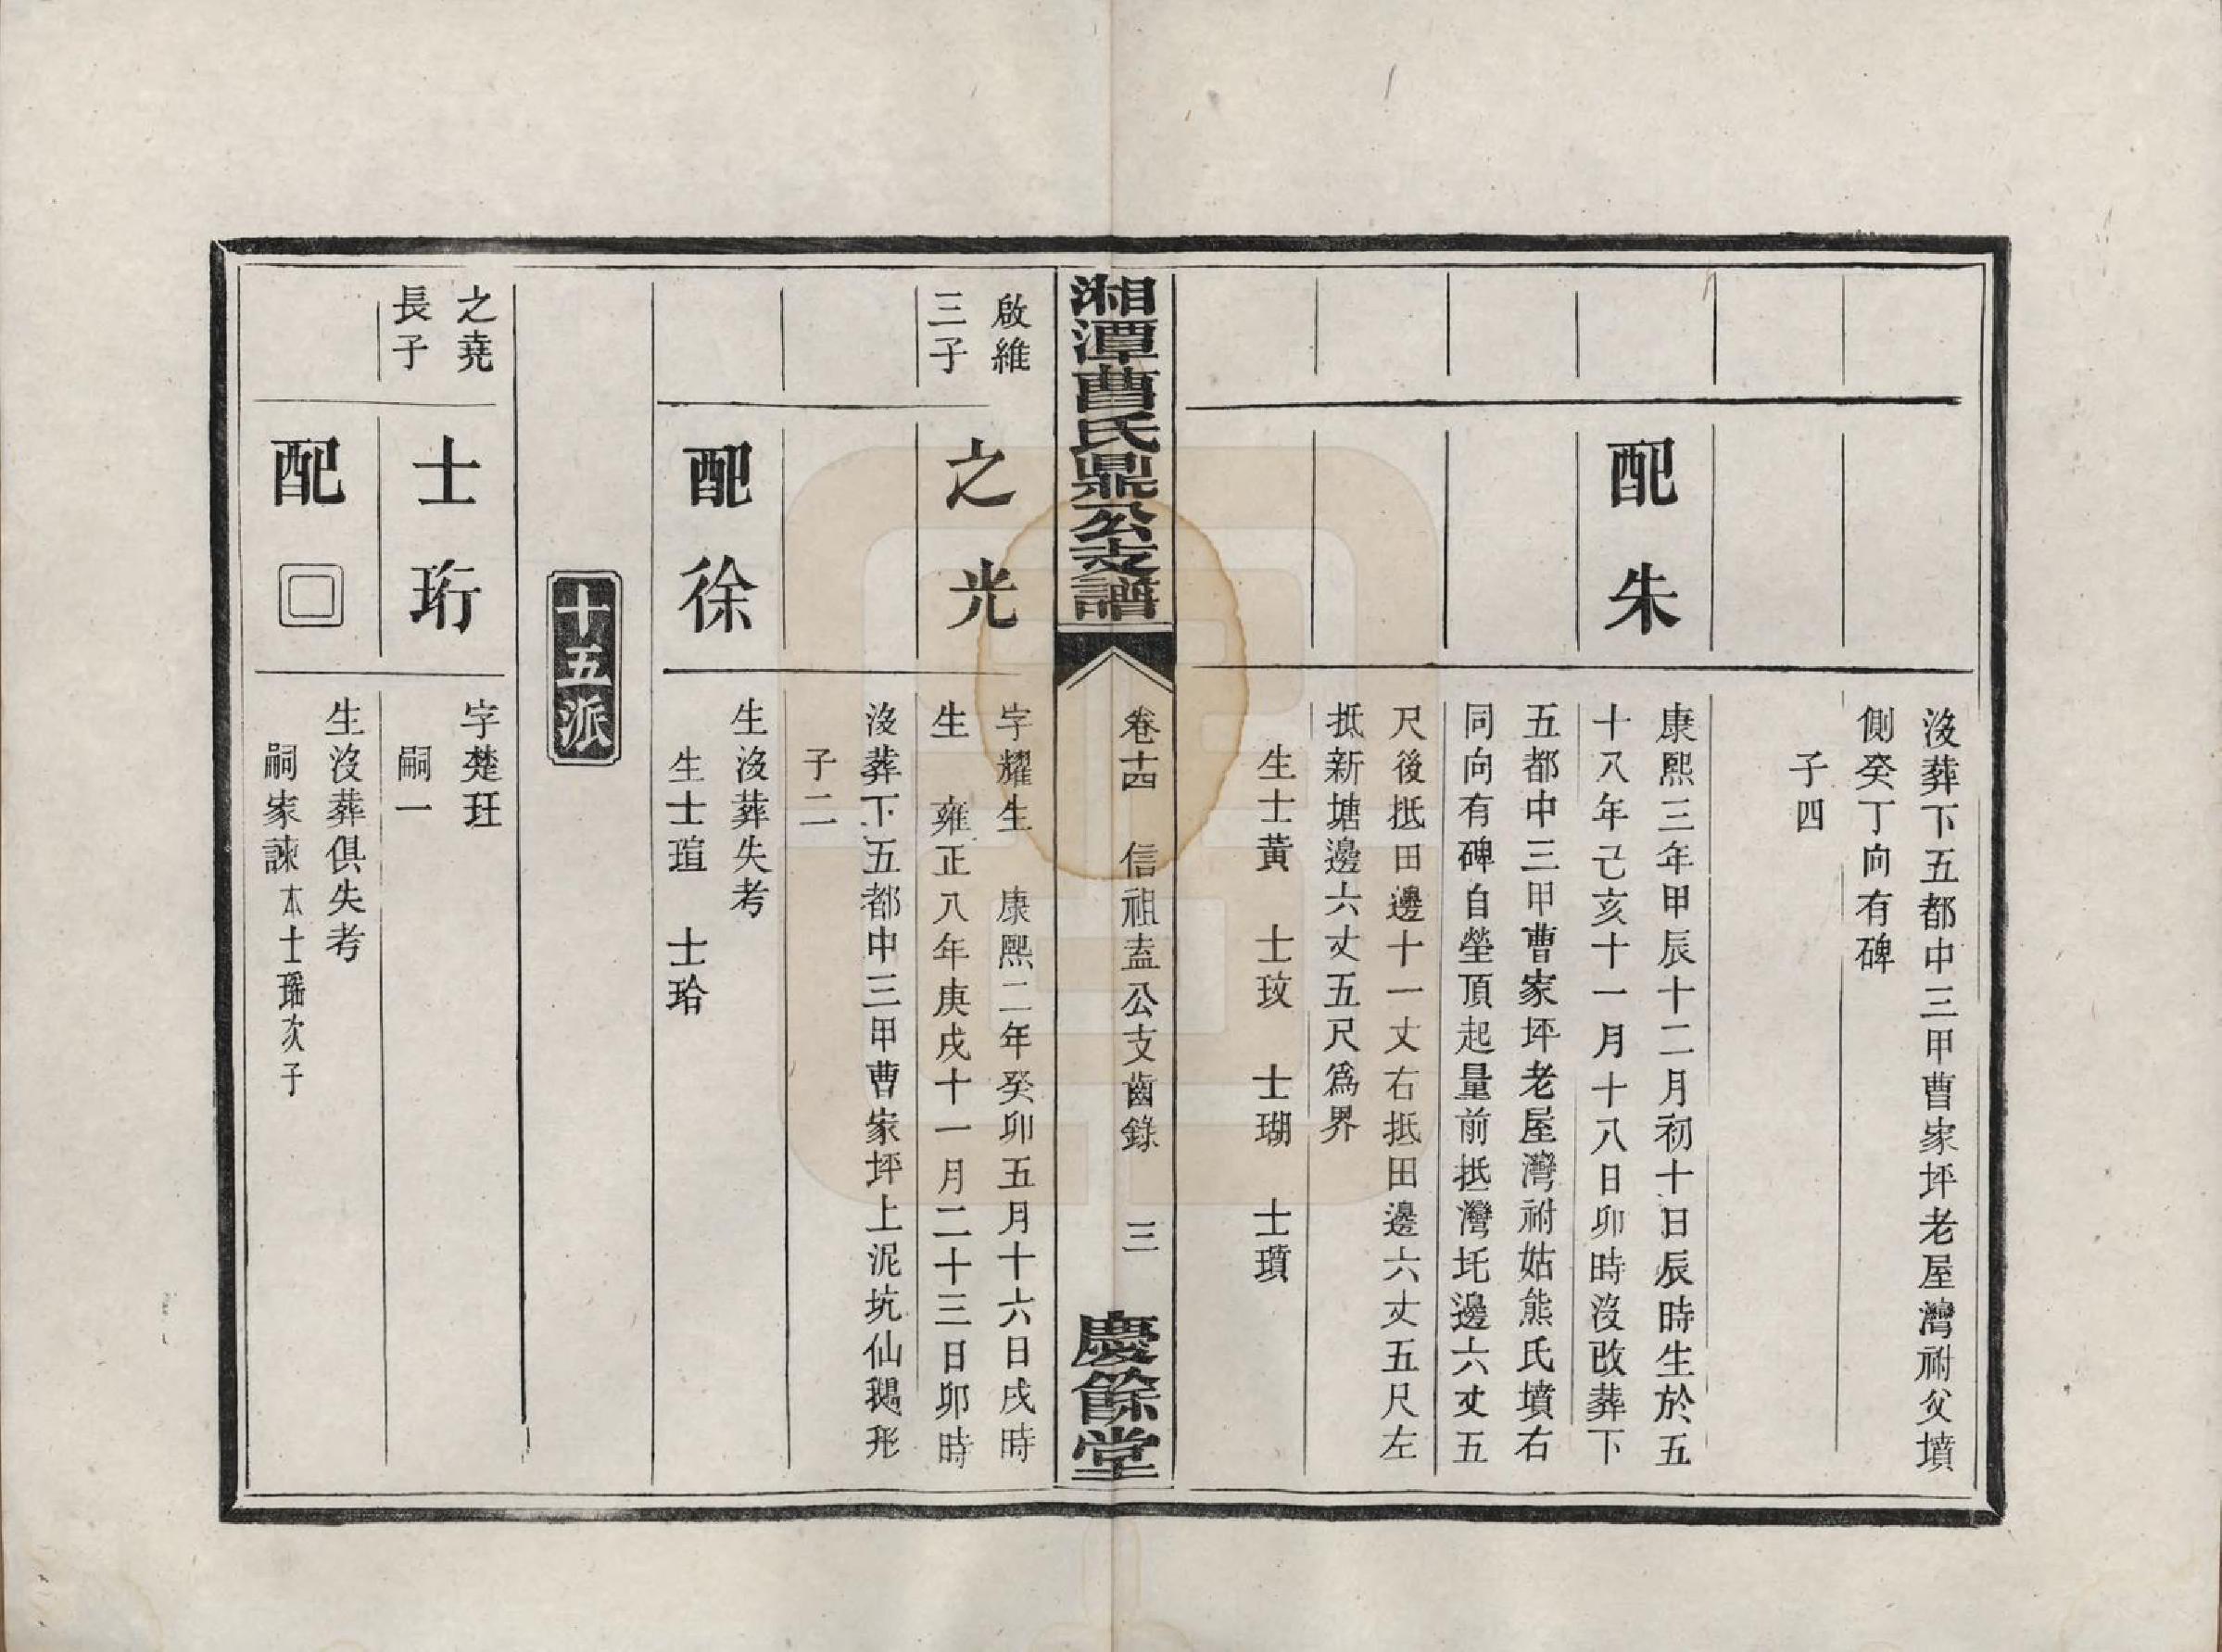 沒葬下五都中三甲曹家坪老屋灣祔父墳
側癸丁向有碑
子四
配朱
康熙三年甲辰十二月初十日辰時生於五
十八年己亥十一月十八日卯時沒改葬下
五都中三甲曹家坪老屋灣祔姑熊氏墳右
同向有碑自塋頂起量前抵灣圫邊六丈五
尺後抵田邊十一丈右抵田邊六丈五尺左
抵新塘邊六丈五尺為界
生士黃　士玟　士瑚　士瓆
湘潭曹氏鼎公支譜
卷十四　信祖盍公支齒錄　三
慶餘堂
啟維
三子
之光
字耀生　康熙二年癸卯五月十六日戌時
生　雍正八年庚戌十一月二十三日卯時
沒葬下五都中三甲曹家坪上泥坑仙鵝形
子二
配徐
生沒葬失考
生士瑄　士珨
十五派
之堯
長子
士珩
字楚玨
嗣一
配□
生沒葬俱失考
嗣家諫本士瑤次子